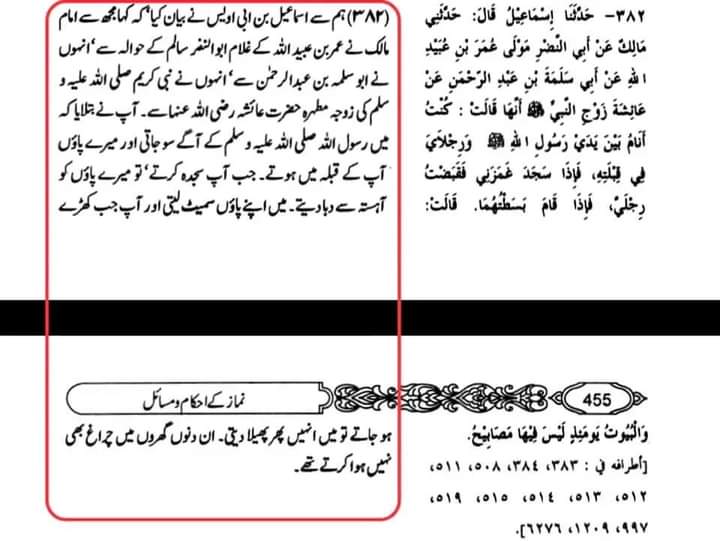 ۳۸۲- حَدَّثَنَا إِسْمَاعِيْلُ قَالَ: حَدَّثَنِي
مَالِكٌ عَنْ أَبِي النَّضْرِ مَوْلَى عُمَرَ بْنِ عُبَيْدِ
اللهِ عَنْ أَبِي سَلَمَةَ بْنِ عَبْدِ الرَّحْمَنِ عَنْ
عَائِشَةَ زَوْجِ النَّبِيِّ ﷺ أَنَّهَا قَالَتْ: كُنْتُ
أَنَامُ بَيْنَ يَدَيْ رَسُولِ اللهِ ﷺ وَرِجْلَايَ
فِي قِبْلَتِهِ، فَإِذَا سَجَدَ غَمَزَنِي فَقَبَضْتُ
رِجْلَيَّ، فَإِذَا قَامَ بَسَطْتُهُمَا. قَالَتْ:
(۳۸۲) ہم سے اسماعیل بن ابی اویس نے بیان کیا' کہ کہا مجھ سے امام
مالک نے عمر بن عبید اللہ کے غلام ابوالنضر سالم کے حوالہ سے' انہوں
نے ابو سلمہ بن عبدالرحمٰن سے' انہوں نے نبی کریم صلی اللہ علیہ و
سلم کی زوجہ مطہرہ حضرت عائشہ رضی اللہ عنہا سے۔ آپ نے بتلایا کہ
میں رسول اللہ صلی اللہ علیہ وسلم کے آگے سو جاتی اور میرے پاؤں
آپ کے قبلہ میں ہوتے۔ جب آپ سجدہ کرتے' تو میرے پاؤں کو
آہستہ سے دبا دیتے۔ میں اپنے پاؤں سمیٹ لیتی اور آپ جب کھڑے
455
نماز کے احکام و مسائل
وَالْبُيُوتُ يَوْمَئِذٍ لَيْسَ فِيْهَا مَصَابِيْحُ.
[أطرافه في : ۳۸۳، ۳۸٤، ۵۰۸، ۵۱۱،
۵۱۲، ۵۱۳، ۵۱٤، ۵۱۵، ۵۱۹،
۹۹۷، ۱۲۰۹، ٦۲۷٦].
ہو جاتے تو میں انہیں پھر پھیلا دیتی۔ ان دنوں گھروں میں چراغ بھی
نہیں ہوا کرتے تھے۔